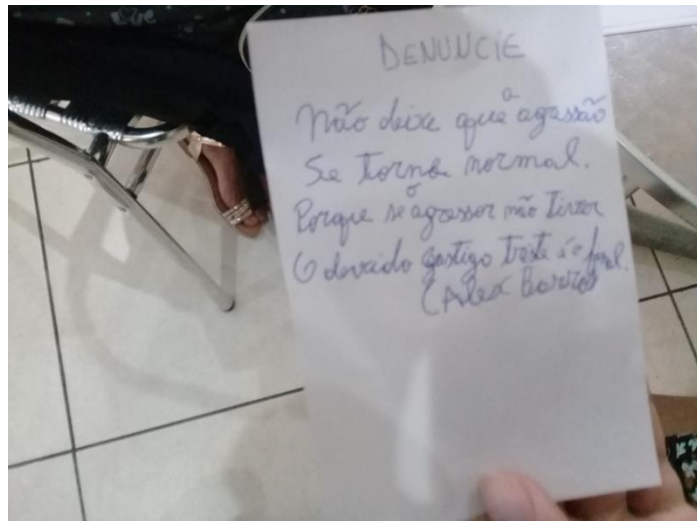 DENUNCIE
Não deixe que a agressão
Se torne normal.
Porque se o agressor não tiver
O devido castigo triste é o final.
(Alex Barros)